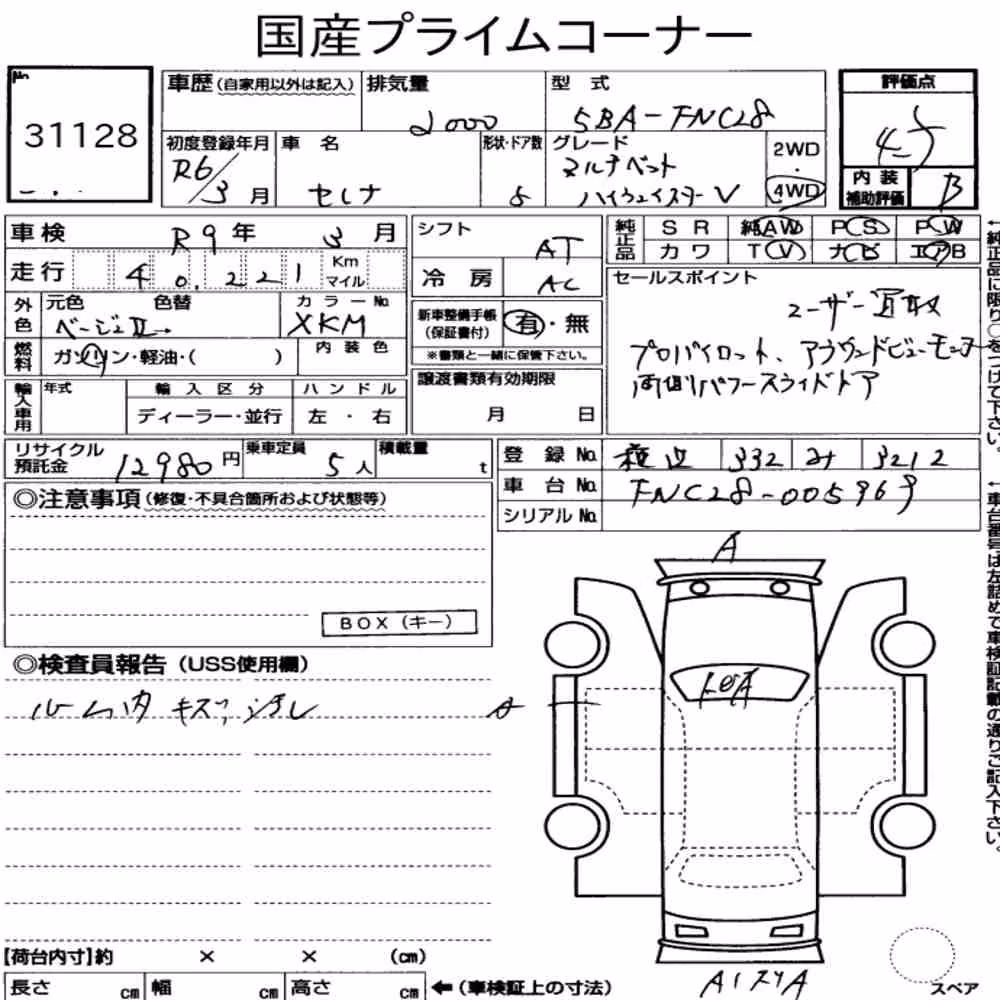 国産プライムコーナー
No. 31128
車歴(自家用以外は記入)
排気量 2000
型式 5BA-FNC28
評価点 4.5
初度登録年月 R6/3月
車名 セレナ
形状・ドア数 5
グレード
ハイウェイスターV
2WD
・
4WD
内装補助評価 B
車検 R9年 3月
走行 40,221 Km マイル
外色 元色 色替 カラーNo.
ベージュII→ XKM
燃料 ガソリン・軽油・( )
内装色
輸入車用 年式 輸入区分 ハンドル
ディーラー・並行 左・右
シフト AT
冷房 AC
新車整備手帳(保証書付) 有・無
※書類と一緒に保管下さい。
譲渡書類有効期限
月 日
純正品 SR 純AW PS PW
カワ TV ナビ エアB
セールスポイント
ユーザー買取
プロパイロット、アラウンドビューモニター
両側パワースライドドア
←純正品に限り○をつけて下さい。
リサイクル預託金 12980円
乗車定員 5人
積載量 t
登録No. 332 み 3212
車台No. FNC28-005963
シリアルNo.
←車台番号は左詰めで車検証記載の通りご記入下さい。
◎注意事項(修復・不具合箇所および状態等)
BOX(キー)
◎検査員報告(USS使用欄)
ルーム内 キズ、汚レ
A
A
トビA
【荷台内寸】約 × × (cm)
長さ cm 幅 cm 高さ cm ←(車検証上の寸法)
スペア